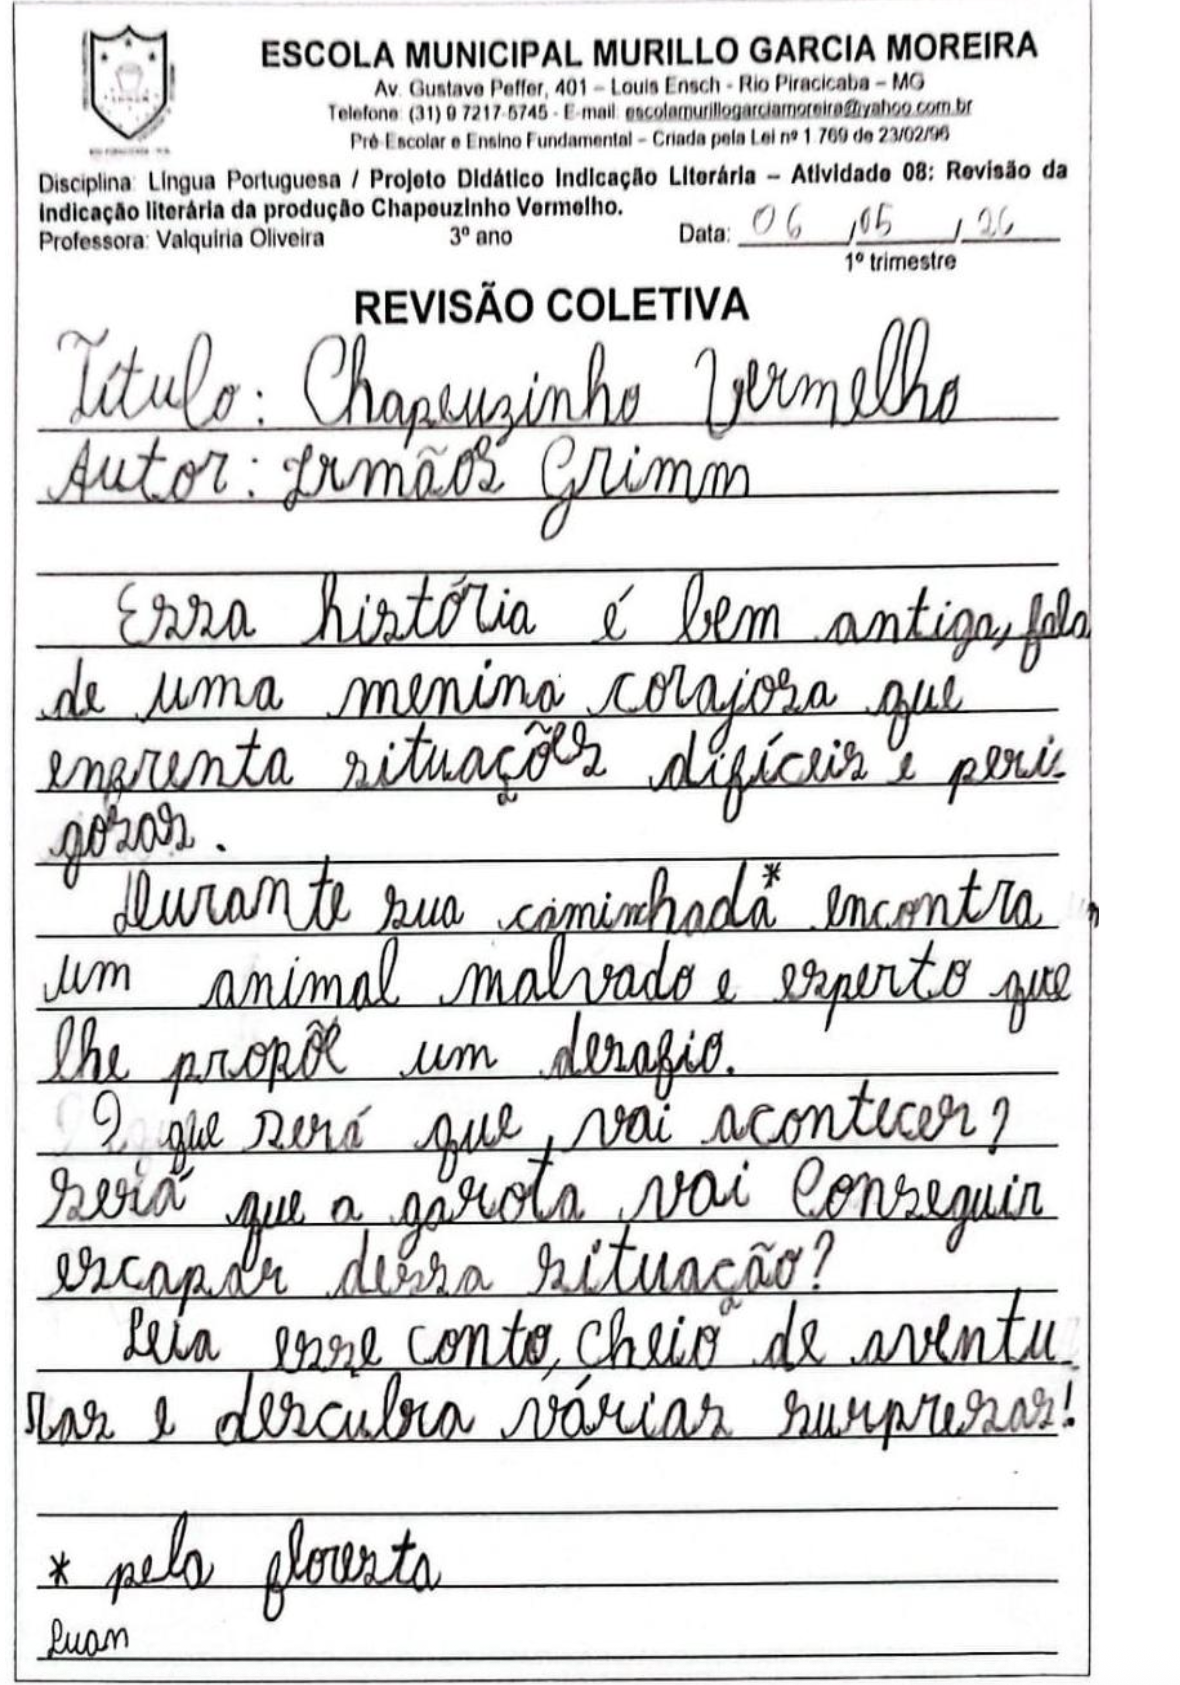 ESCOLA MUNICIPAL MURILLO GARCIA MOREIRA
Av. Gustave Peffer, 401 – Louis Ensch - Rio Piracicaba – MG
Telefone: (31) 9 7217-5745 - E-mail: escolamurillogarciamoreira@yahoo.com.br
Pré Escolar e Ensino Fundamental – Criada pela Lei nº 1.769 de 23/02/96
Disciplina: Língua Portuguesa / Projeto Didático Indicação Literária – Atividade 08: Revisão da
indicação literária da produção Chapeuzinho Vermelho.
Professora: Valquíria Oliveira 3º ano Data: 06/05/26
1º trimestre
REVISÃO COLETIVA
Título: Chapeuzinho Vermelho
Autor: Irmãos Grimm
Essa história é bem antiga, fala
de uma menina corajosa que
enfrenta situações difíceis e peri-
gosas.
Durante sua caminhada* encontra
um animal malvado e esperto que
lhe propõe um desafio.
O que será que vai acontecer?
será que a garota vai conseguir
escapar dessa situação?
Leia esse conto, cheio de aventu-
ras e descubra várias surpresas!
* pela floresta
Luan